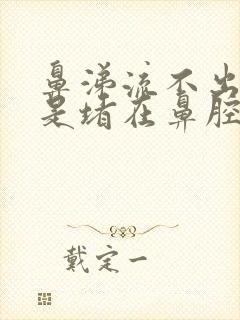 鼻涕流不出
是堵在鼻腔
戴定一